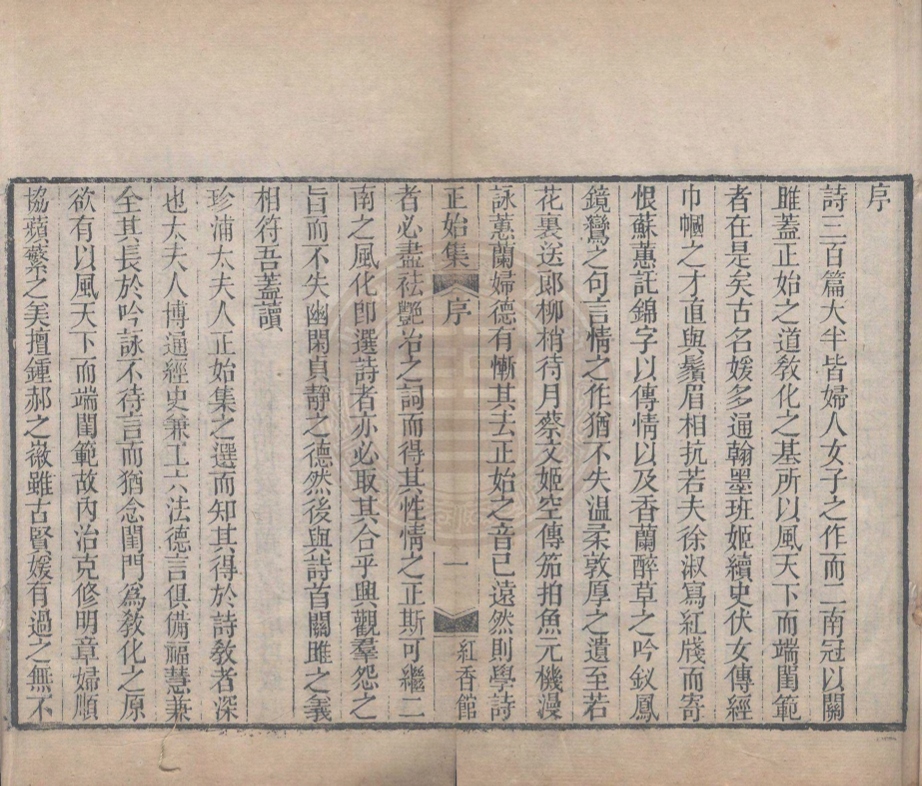 序
詩三百篇大半皆婦人女子之作而二南冠以關
雎蓋正始之道敎化之基所以風天下而端閨範
者在是矣古名媛多通翰墨班姬續史伏女傳經
巾幗之才直與鬚眉相抗若夫徐淑寫紅牋而寄
恨蘇蕙託錦字以傳情以及香蘭醉草之吟釵鳳
鏡鸞之句言情之作猶不失溫柔敦厚之遺至若
花裏送郞柳梢待月蔡文姬空傳笳拍魚元機漫
詠蕙蘭婦德有慚其去正始之音已遠然則學詩
正始集 序 一 紅香館
者必盡祛艷冶之詞而得其性情之正斯可繼二
南之風化卽選詩者亦必取其合乎興觀羣怨之
旨而不失幽閑貞靜之德然後與詩首關雎之義
相符吾蓋讀
珍浦太夫人正始集之選而知其得於詩敎者深
也太夫人博通經史兼工六法德言俱備福慧兼
全其長於吟詠不待言而猶念閨門爲敎化之原
欲有以風天下而端閨範故內治克修明章婦順
協蘋蘩之美擅鍾郝之徽雖古賢媛有過之無不